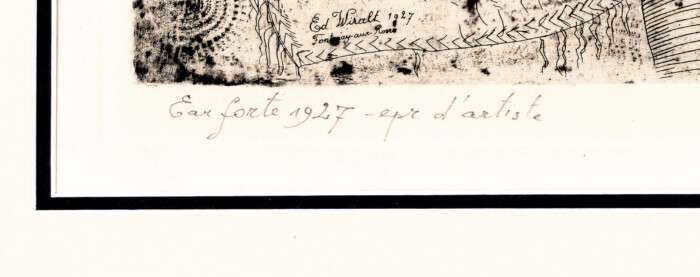 Ed Wiralt 1927
Fontenay-aux-Roses
Eau forte 1927 - epr d'artiste